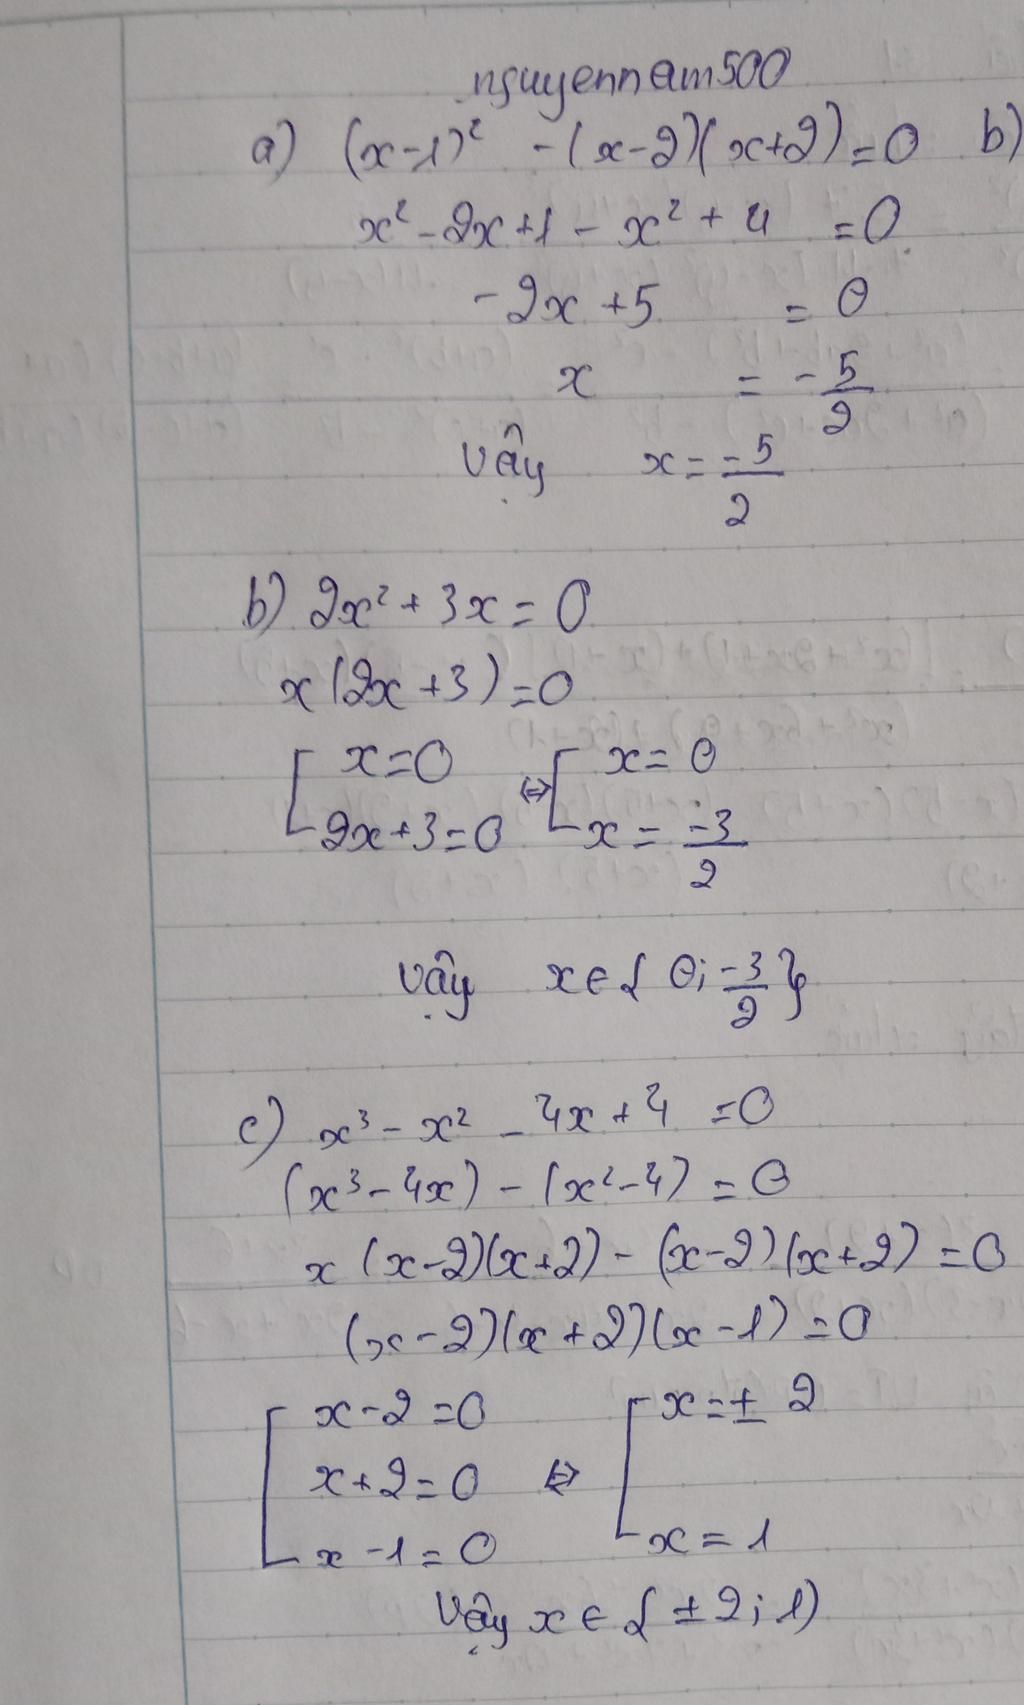 nguyennam500
a) (x-1)² - (x-2)(x+2) = 0 b)
x² - 2x + 1 - x² + 4 = 0
-2x + 5 = 0
x = -5/2
Vậy x = -5/2
b) 2x² + 3x = 0
x(2x + 3) = 0
[ x = 0 ⇔ [ x = 0
2x + 3 = 0 x = -3/2
Vậy x ∈ { 0; -3/2 }
c) x³ - x² - 4x + 4 = 0
(x³ - 4x) - (x² - 4) = 0
x (x-2)(x+2) - (x-2)(x+2) = 0
(x-2)(x+2)(x-1) = 0
[ x - 2 = 0 [ x = ± 2
x + 2 = 0 ⇔
x - 1 = 0 x = 1
Vậy x ∈ { ± 2; 1)